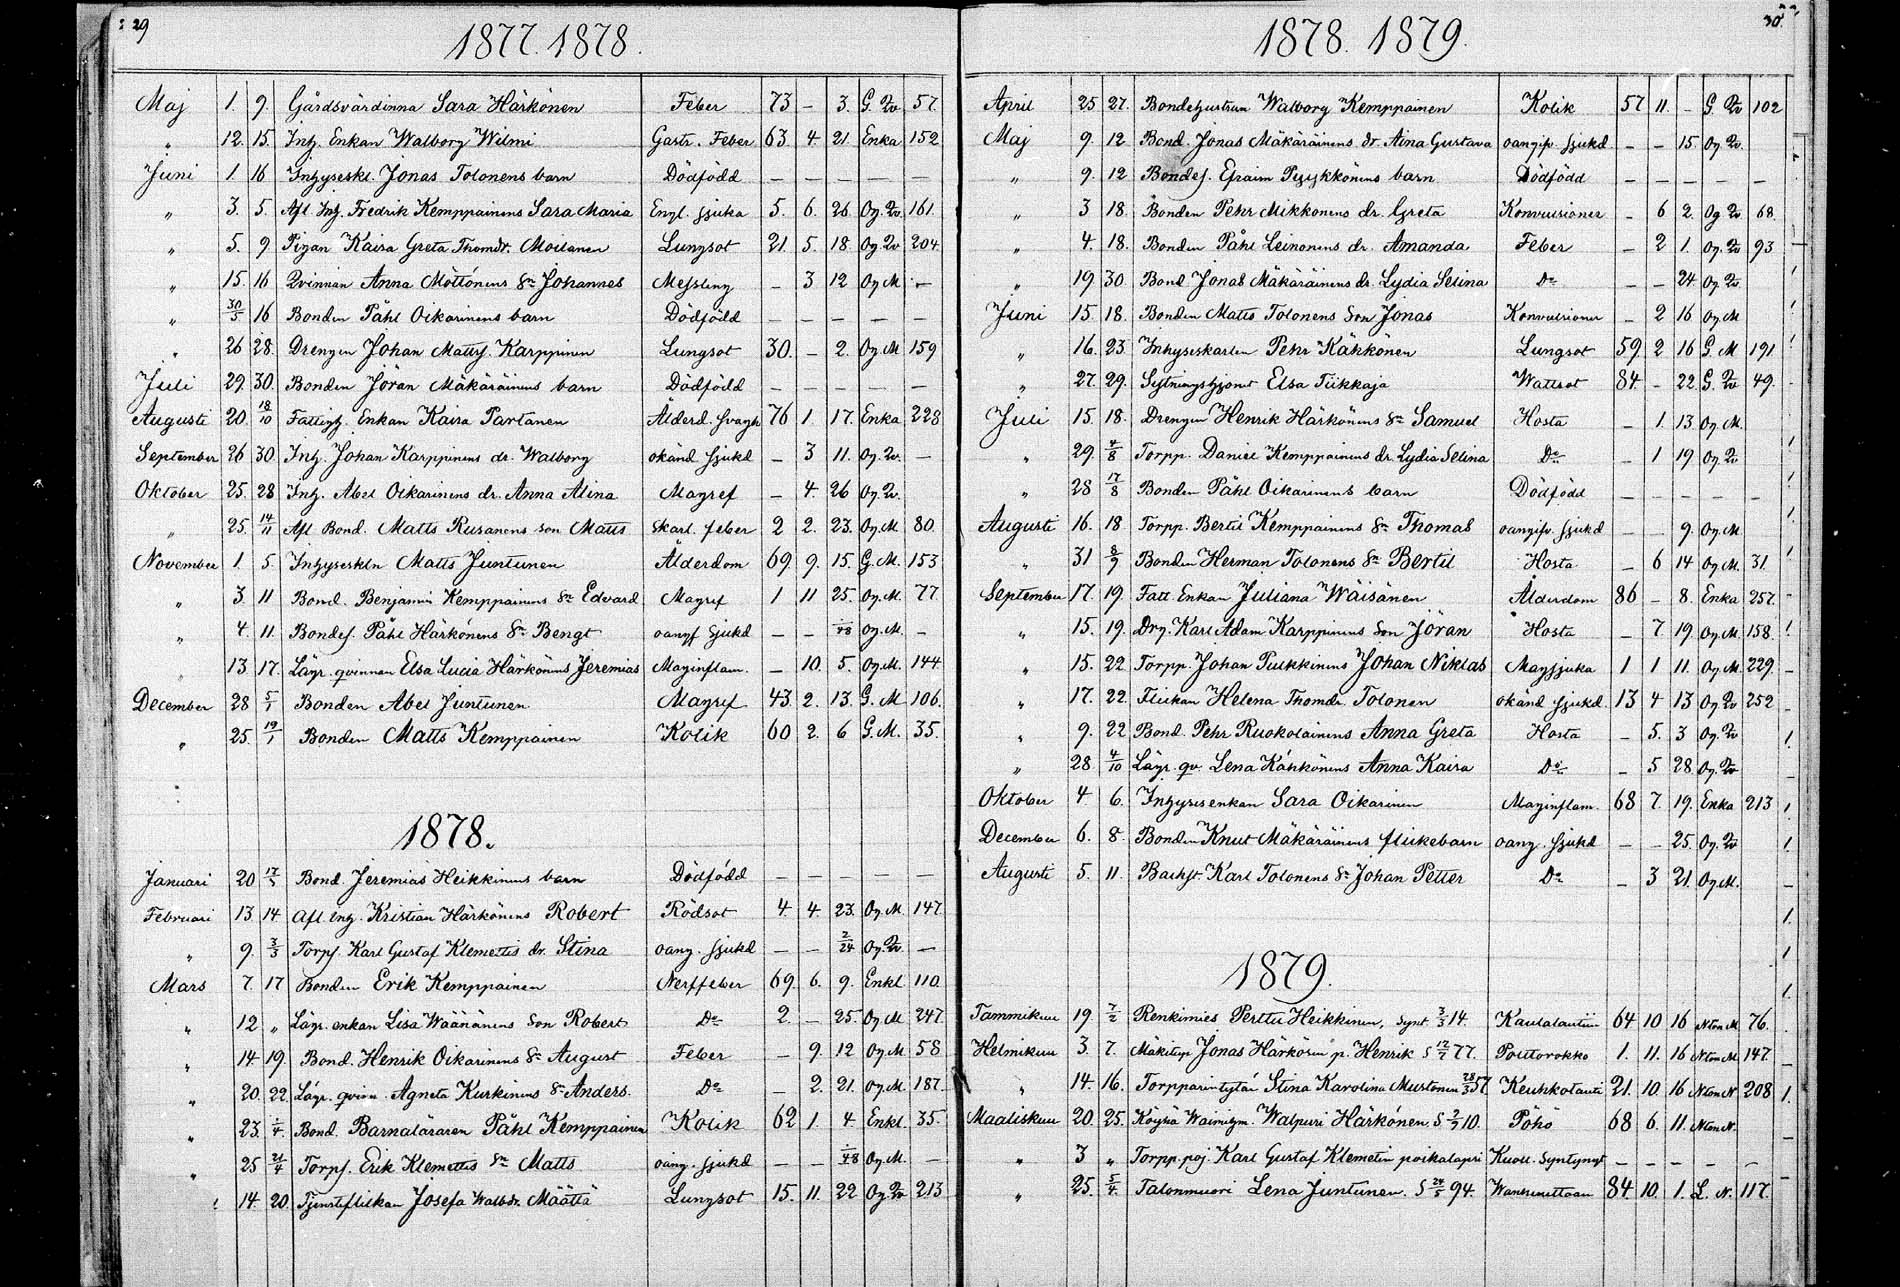 29
1877. 1878.
Maj 1. 9. Gårdsvärdinna Sara Härkönen Feber 73 – 3. G. Qv. 57.
„ 12. 15. Inh. Enkan Walborg Wilmi Gastr. Feber 63 4. 21. Enka 152
Juni 1 16 Inhyseskl. Jonas Tolonens barn Dödfödd – – – – –
„ 3. 5. Afl. Inh. Fredrik Kemppainens Sara Maria Engl. sjuka 5. 6. 26. Og. Qv. 161.
„ 5. 9 Pigan Kaisa Greta Thomdr. Moilanen Lungsot 21. 5. 18. Og. Qv 204.
„ 15. 16 Qvinnan Anna Möttönens Sn Johannes Messling – 3 12 Og M. –
„ 30/5 16 Bonden Påhl Oikarinens barn Dödfödd – – – – –
„ 26 28. Drengen Johan Mattss. Karppinen Lungsot 30. – 2. Og. M 159
Juli 29. 30. Bonden Jöran Mäkäräinens barn Dödfödd – – – – –
Augusti 20. 18/10 Fattigh. Enkan Kaisa Partanen Ålderd. svagh 76 1. 17. Enka 228
September 26 30. Inh. Johan Karppinens dr. Walborg okänd sjukd – 3 11. Og. Qv. –
Oktober 25. 28 Inh. Abel Oikarinens dr. Anna Alina Magref – 4. 26 Og. Qv.
„ 25. 14/11 Afl Bond. Matts Rusanens son Matts Skarl. feber 2 2. 23. Og. M. 80.
November 1. 5. Inhyseskln Matts Juntunen Ålderdom 69 9. 15. G. M. 153
„ 3. 11 Bond. Benjamin Kemppainens Sn Edvard Magref 1 11 25. Og. M. 77.
„ 4. 11. Bondes. Påhl Härkönens Sn Bengt oangf sjukd – – 1/48 Og. M. –
„ 13. 17. Lägr. qvinnan Elsa Lucia Härkönens Jeremias Maginflam. – 10. 5. Og. M. 144
December 28 5/1 Bonden Abel Juntunen Magref 43. 2. 13. G. M 106.
„ 25. 19/1 Bonden Matts Kemppainen Kolik 60 2. 6 G. M. 35.
1878.
Januari 20 17/3 Bond. Jeremias Heikkinens barn Dödfödd – – – – –
Februari 13. 14. Afl. Inh. Kristian Härkönens Robert Rödsot 4. 4. 23. Og. M. 147.
„ 9. 3/3 Torps. Karl Gustaf Klemettis dr. Stina oang. sjukd – – 2/24 Og. Qv. –
Mars 7. 17 Bonden Erik Kemppainen Nerffeber 69. 6. 9. Enkl. 110.
„ 12. „ Lägr. enkan Lisa Wäänänens Son Robert Do 2. – 25. Og M. 247.
„ 14. 19. Bond. Henrik Oikarinens Sn August Feber – 9. 12 Og. M. 58
„ 20. 22. Lägr. qvinn. Agneta Kurkinens Sn Anders. Do – 2. 21. Og. M. 187.
„ 23. 1/4. Bond. Barnaläraren Påhl Kemppainen Kolik 62 1. 4 Enkl. 35.
„ 25 21/4 Torps. Erik Klemettis Sn Matts oang. sjukd – – 1/48 Og. M. –
14. 20. Tjensteflickan Josefa Walbdr. Määttä Lungsot 15. 11. 22 Og. Qv 213
30.
1878. 1879.
April 25 27. Bondehustrun Walborg Kemppainen Kolik 57 11. – G. Qv 102
Maj 9. 12 Bond. Jonas Mäkäräinens dr. Aina Gustava oangifv. sjukd – – 15. Og Qv.
„ 9. 12 Bondes. Efraim Pyykkönens barn Dödfödd – – – – –
„ 3 18. Bonden Pehr Mikkonens dr. Greta Konvulsioner – 6 2. Og Qv. 68.
„ 4. 18. Bonden Påhl Leinonens dr. Amanda Feber – 2 1. Og. Qv 93
„ 19 30. Bond Jonas Mäkäräinens dr. Lydia Selina Do – – 24. Og Qv.
Juni 15. 18. Bonden Matts Tolonens Son Jonas Konvulsioner – 2 16 Og M
„ 16. 23. Inhyseskarlen Pehr Kähkönen Lungsot 59. 2 16 G. M 191
„ 27. 29. Sytningshjonet Elsa Tiikkaja Wattsot 84. – 22. G. Qv 49.
Juli 15. 18. Drengen Henrik Härkönens Sn Samuel Hosta – 1. 13. Og M.
„ 29. 4/8 Torpp. Daniel Kemppainens dr. Lydia Selina Do – 1 19 Og Qv
„ 28 17/8 Bonden Påhl Oikarinens barn Dödfödd – – – – –
Augusti 16. 18 Torpp. Bertil Kemppainens Sn Thomas oangifv. sjukd – – 9. Og. M.
„ 31 8/9 Bonden Herman Tolonens Sn Bertil Hosta – 6 14 Og M. 31.
September 17. 19. Fatt. Enkan Juliana Wäisänen Ålderdom 86 – 8. Enka 257.
„ 15. 19. Drg. Karl Adam Karppinens Son Jöran Hosta – 7. 19. Og M. 158.
„ 15. 22. Torpp. Johan Pulkkinens Johan Niklas Magsjuka 1 1 11. Og. M. 229.
„ 17. 22. Flickan Helena Thomdr. Tolonen okänd sjukd. 13 4 13 Og Qv 252
„ 9. 22 Bond. Pehr Ruokolainens Anna Greta Hosta – 5. 3 Og. Qv
„ 28. 4/10 Lägr. qv. Lena Kähkönens Anna Kaisa Do – 5 28. Og. Qv
Oktober 4. 6. Inhysesenkan Sara Oikarinen Maginflam. 68 7. 19. Enka 213
December 6. 8. Bonden Knut Mäkäräinens flickebarn oang. sjukd – – 25. Og. Qv
Augusti 5. 11. Backst. Karl Tolonens Sn Johan Petter Do – 3 21. Og M.
1879.
Tammikuu 19 7/2 Renkimies Perttu Heikkinen, Synt. 3/3 14. Kaulatautiin 64 10 16 Nton M. 76.
Helmikuu 3. 7. Mäkitup Jonas Härkösen p. Henrik S 17/2 77. Polttorokko 1. 11. 16 Nton M. 147.
„ 14. 16. Torpparintytär Stina Karolina Mustonen 28/3 57. Keuhkotauti 21. 10. 16 Nton N 208
Maaliskuu 20. 25. Köyhä Waimoim. Walpuri Härkönen S. 9/9 10. Pöhö 68 6. 11. Nton N.
„ 3 „ Torpp. poj. Karl Gustaf Klemetin poikalapsi Kuoll. Syntynyt – – – – –
„ 25. 5/4. Talonmuori Lena Juntunen. S 24/5 94. Wanhuuttaan 84. 10. 1. L. N. 117.